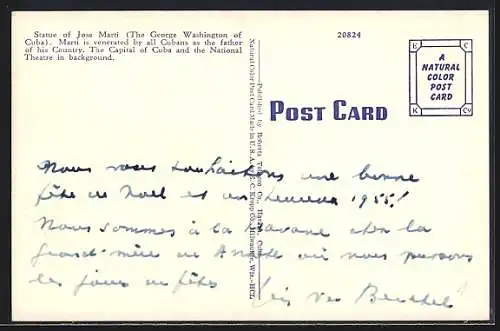 Statue of Jose Marti (The George Washington of
Cuba). Marti is venerated by all Cubans as the father
of his Country. The Capital of Cuba and the National
Theatre in background.
20824
E C
A
NATURAL
COLOR
POST
CARD
K Co
POST CARD
Published by Roberts Tobacco Co., Havana, Cuba
Natural Color Post Card Made in U.S.A. by E. C. Kropp Co., Milwaukee, Wis.
Nous vous souhaitons une bonne
fête de Noël et un heureux 1955!
Nous sommes à la Havane chez la
grand-mère de où nous passons
les jours de fêtes